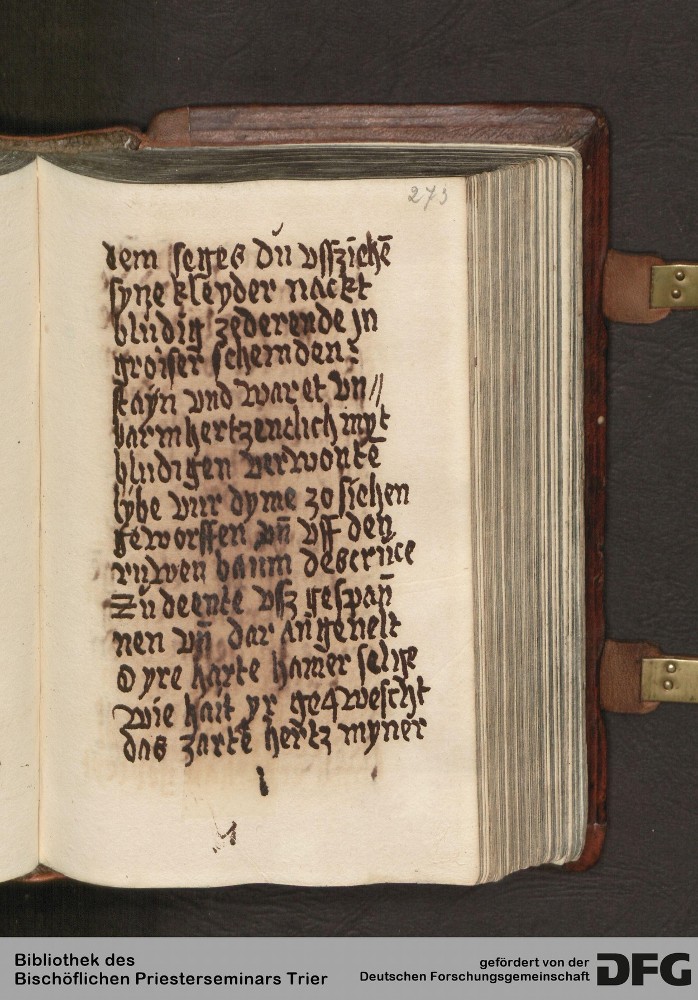 273
dem seyes du vsszichē
syne kleyder nackt
bludig zederende jn
groiser schemden:
stayn vnd waret vn//
barmhertzenclich myt
bludigen verwontē
lybe vur dyme zo sichen
geworffen vn̄ vff den
ruwen baum des cruce
Zu deente vsz gespan̄
nen vn̄ dar an genelt
O yre harte hamer selge
wie hait yr geqwescht
das zartē hertz myner
Bibliothek des
Bischöflichen Priesterseminars Trier
gefördert von der
Deutschen Forschungsgemeinschaft
DFG